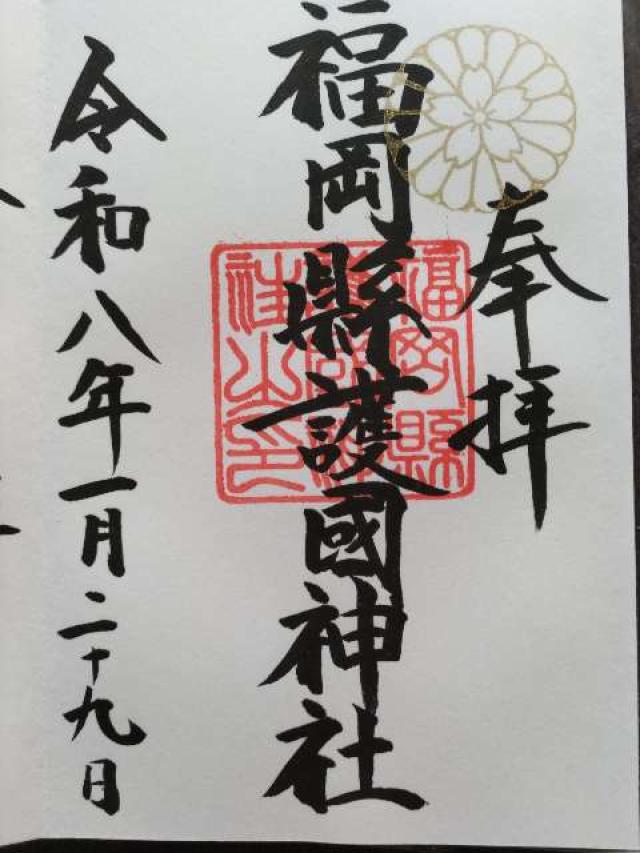 奉拝
福岡縣護國神社
福岡縣護國神社之印
令和八年一月二十九日